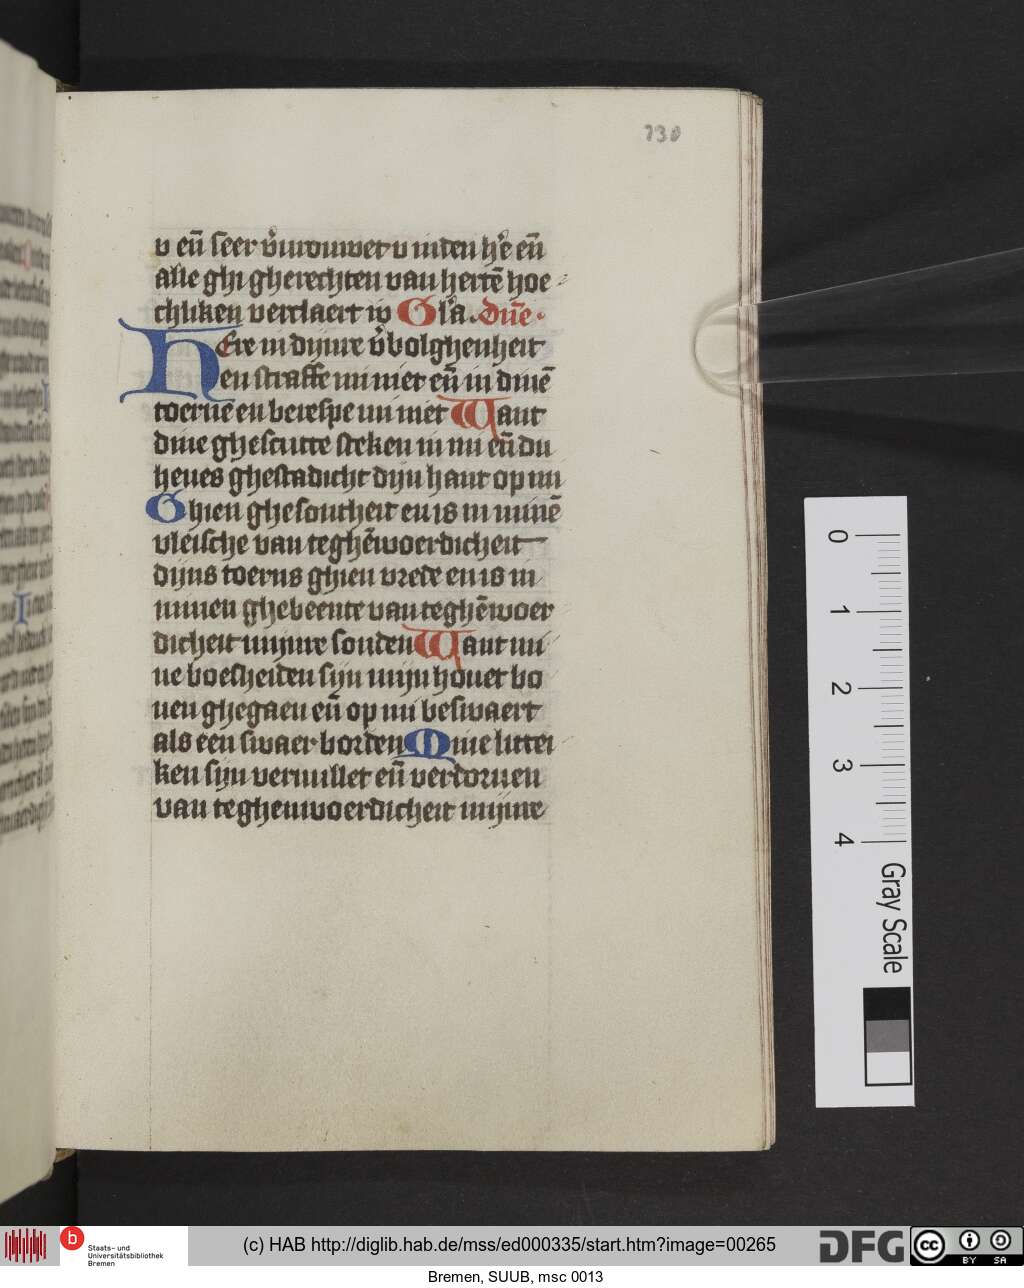 130
v eñ seer v̾vrouwet v inden he̾ eñ
alle ghi gherechten van hertē hoe
chliken verclaert w Gl̾a. dn̄e.
HEre in dijnre v̾bolghenheit
en straffe mi niet eñ in dinē
toerne en berespe mi niet Want
dine ghescutte steken in mi eñ du
heues ghestadicht dijn hant op mi
Ghien ghesontheit en is in minē
vleische van teghēwoerdicheit
dijns toerns ghien vrede en is in
minen ghebeente van teghēwoer
dicheit mijnre sonden Want mi
ne boesheiden sijn mijn houet bo
uen ghegaen eñ op mi beswaert
als een swaer borden Mine littei
ken sijn vervullet eñ verdoruen
van teghenwoerdicheit mijnre
0
1
2
3
4
Gray Scale
b
Staats- und
Universitätsbibliothek
Bremen
(c) HAB http://diglib.hab.de/mss/ed000335/start.htm?image=00265
DFG
cc
BY SA
Bremen, SUUB, msc 0013